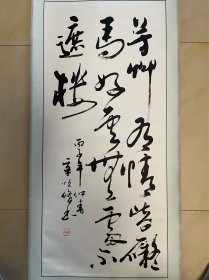 芳艸有情皆礙
馬好雲無處不
遮樓
丙子年仲春
書